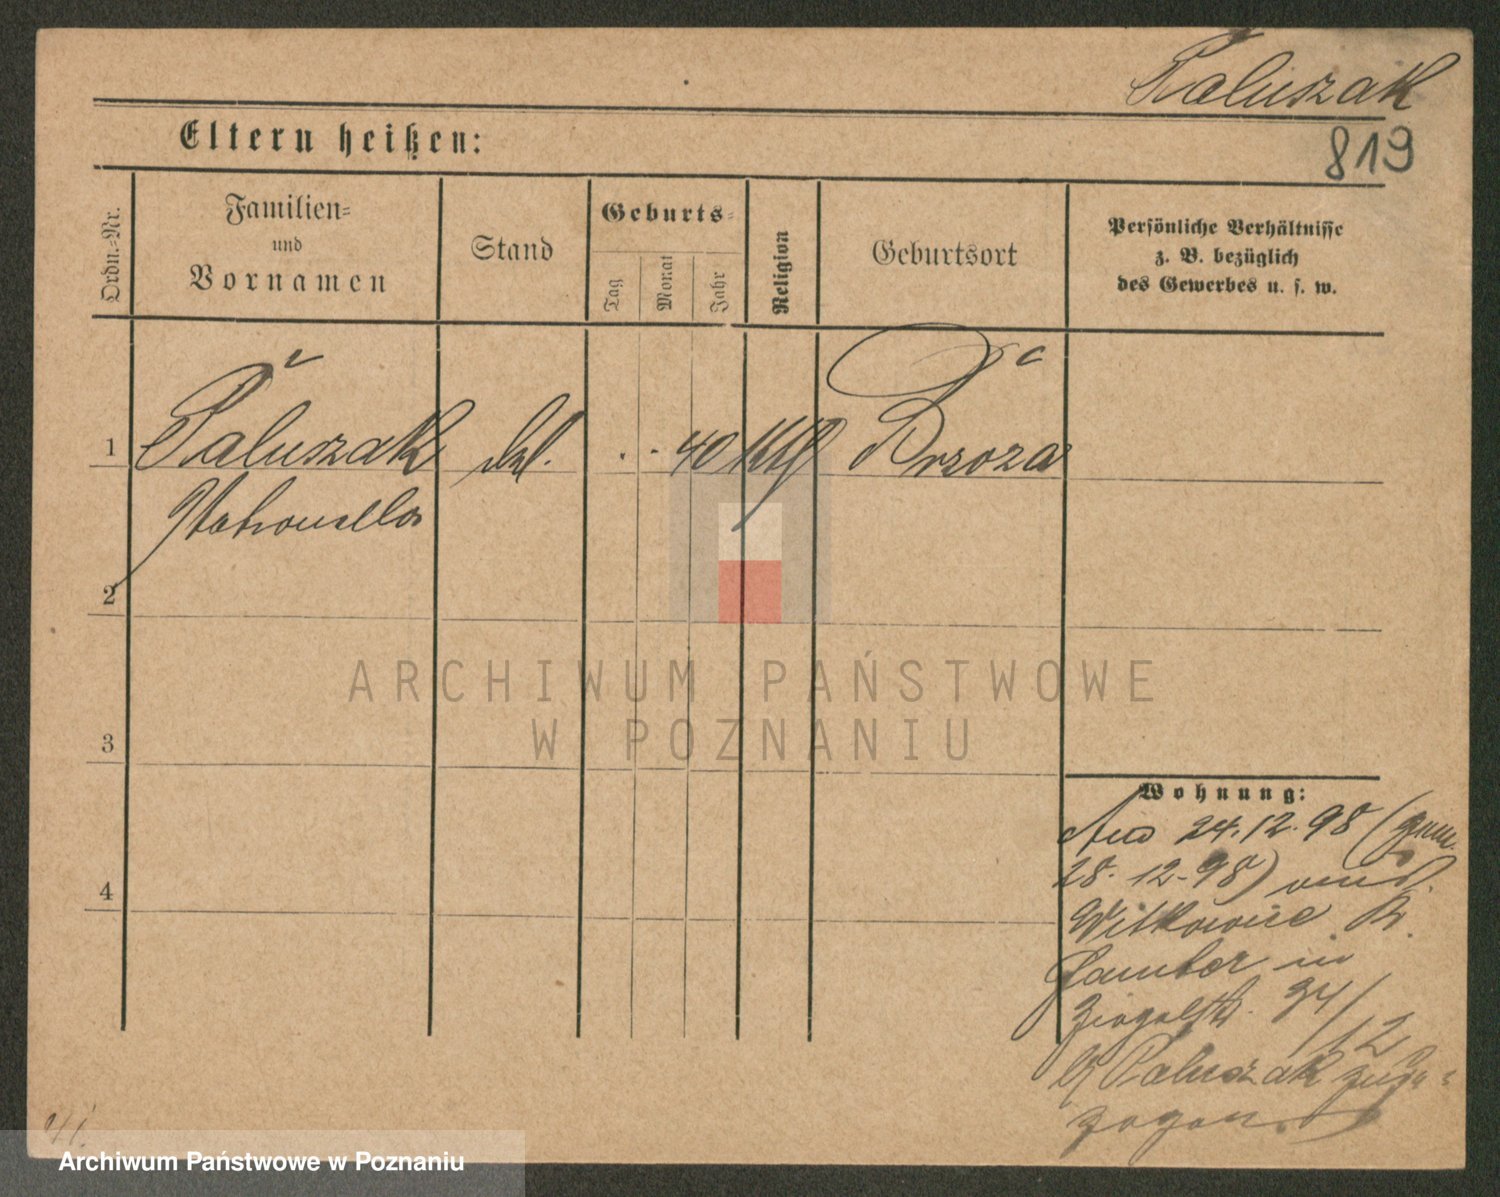 Paluszak
819
Eltern heißen:
Ordn.=Nr.
Familien=
und
Vornamen
Stand
Geburts=
Tag
Monat
Jahr
Religion
Geburtsort
Persönliche Verhältnisse
z. B. bezüglich
des Gewerbes u. s. w.
1 Paluszak . . 40 Brzoza
Petronella
2
3
4
ARCHIWUM PAŃSTWOWE
W POZNANIU
Wohnung:
24.12.98 (gem.
28.12.98) von
Witkowice Kr.
Samter in
Ziegelstr. 34/
12
Paluszak zuge=
zogen.
Archiwum Państwowe w Poznaniu